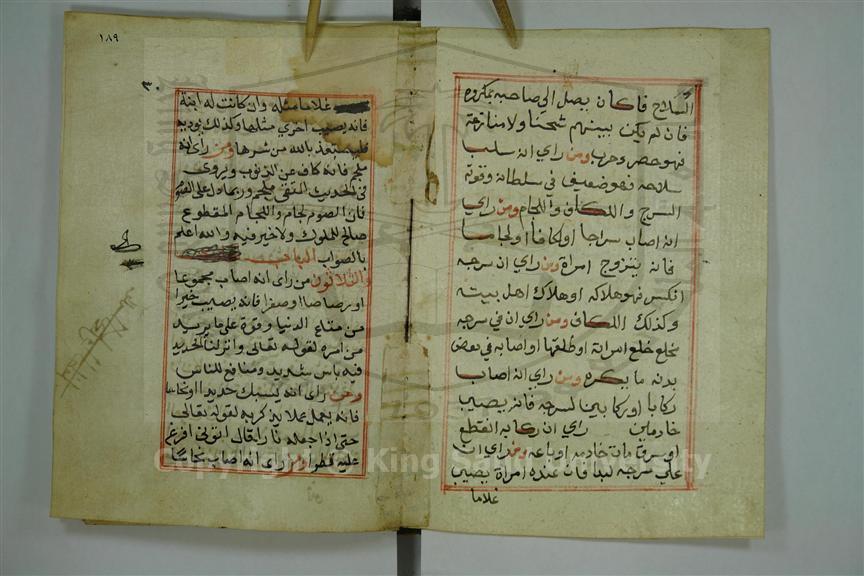 السلاح فاكان يصل الى صاحبه بمكروه
فان لم يكن بينهم شحنا ولا منازعة
فهو حصر وحرب ومن راي انه سلب
سلاحه فهو ضعيف في سلطانه وقوته
السرج والاكاف واللجام ومن راي
انه اصاب سراجا او اكافا او لجاما
فانه يتزوج امراة ومن راي ان سرجه
انكسر فهو هلاكه او هلاك اهل بيته
وكذلك الاكاف ومن راي ان في سرجه
خلع امراته او طلقها او اصابه في بعض
بدنه ما يكره ومن راي انه اصاب
ركابا او ركابين لسرجه فانه يصيب
خادمين راي ان ركابه انقطع
او سرق مات خادمه او باعه ومن راي ان
على سرجه لبدا فان عنده امراة يصيب
غلاما
١٨٩
٣٠
غلاما مثله وان كانت له ابنة
فانه يصيب اخري مثلها وكذلك
فليستعذ بالله من شرها ومن راى انه
ملجم فانه كاف عن الذنوب ويروى
في الحديث المتقى ملجم وربما دل على الصوم
فان الصوم لجام واللجام المقطوع
صالح للملوك ولا خير فيه والله اعلم
بالصواب الباب
والثلاثون من راى انه اصاب مجموعا
او رصاصا او صفرا فانه يصيب خيرا
من متاع الدنيا وقوة على ما يريد
من امره لقوله تعالى وانزلنا الحديد
فيه باس شديد ومنافع للناس
ومن راى انه يسبك حديدا او نحاسا
فانه يعمل عملا يذكر به لقوله تعالى
حتى اذا جعله نارا قال اتوني افرغ
عليه قطرا ومن راى انه اصاب نحاسا
Copyright © King Saud University